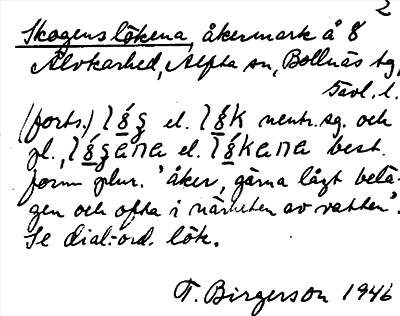 2
Skogenslökena, åkermark å 8
Älvkarhed, Alfta sn, Bollnäs tg,
Gävl. l.
(forts.) lǿg el. lǿk neutr. sg. och
pl., lǿgana el. lǿkana best.
form plur. 'åker, gärna lågt belä-
gen och ofta i närheten av vatten'.
Se dial.-ord. lök.
T. Birgerson 1946